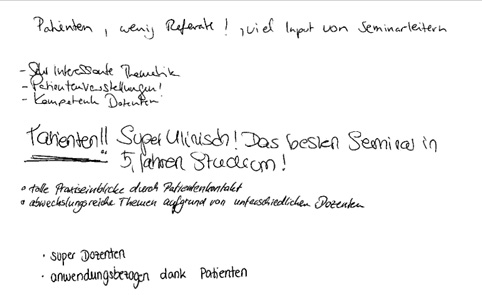 Patienten, wenig Referate!, viel Input von Seminarleitern
- Sehr interessante Thematik
- Patientenvorstellungen!
- Kompetente Dozenten
Patienten!! Super klinisch! Das besten Seminar in
5 Jahren Studium!
• tolle Praxiseinblicke durch Patientenkontakt
• abwechslungsreiche Themen aufgrund von unterschiedlichen Dozenten
• super Dozenten
• anwendungsbezogen dank Patienten